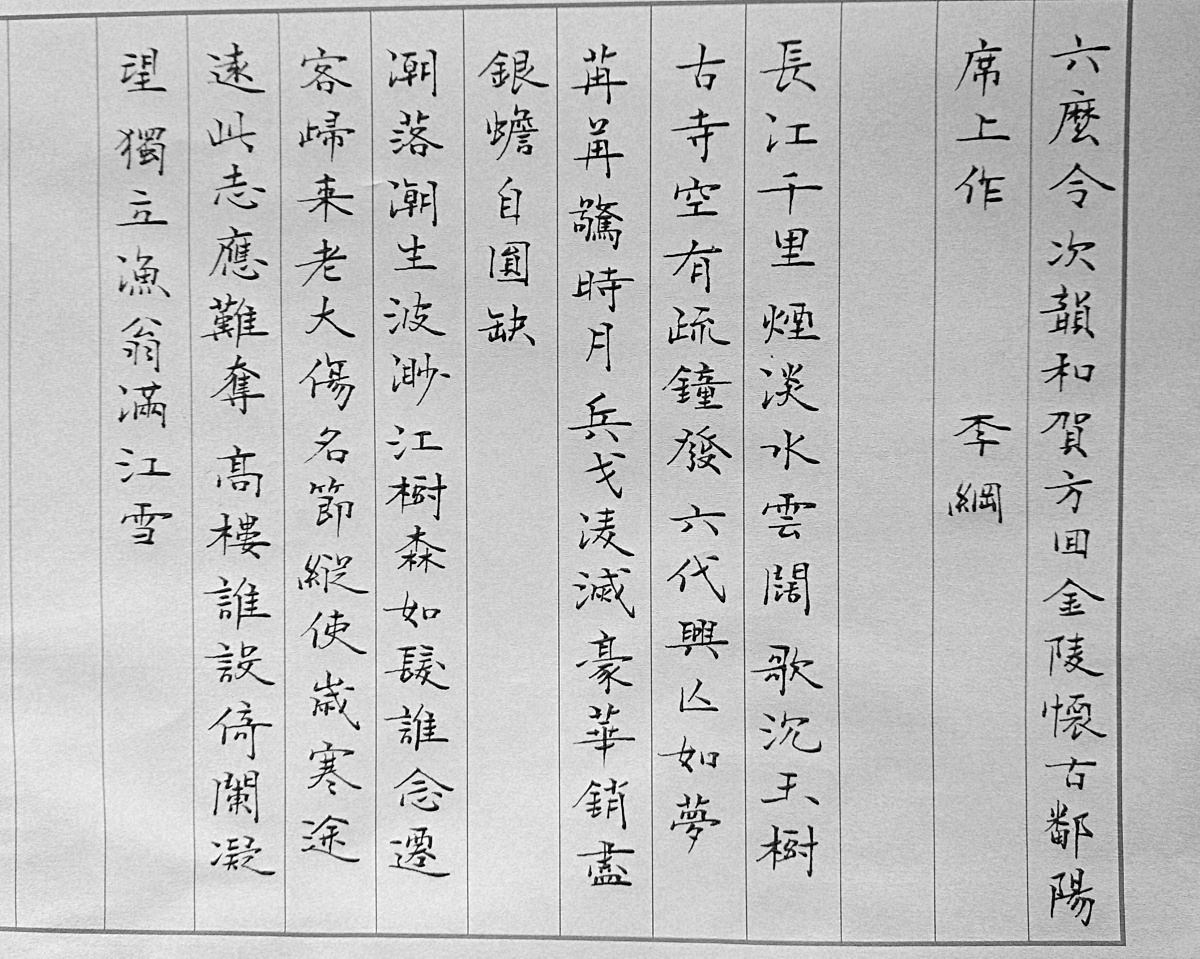 六麼令次韻和賀方回金陵懷古鄱陽
席上作 李綱
長江千里煙淡水雲闊歌沉玉樹
古寺空有疏鐘發六代興亡如夢
苒苒驚時月兵戈凌滅豪華銷盡
銀蟾自圓缺
潮落潮生波渺江樹森如髮誰念遷
客歸來老大傷名節縱使歲寒途
遠此志應難奪高樓誰設倚闌凝
望獨立漁翁滿江雪